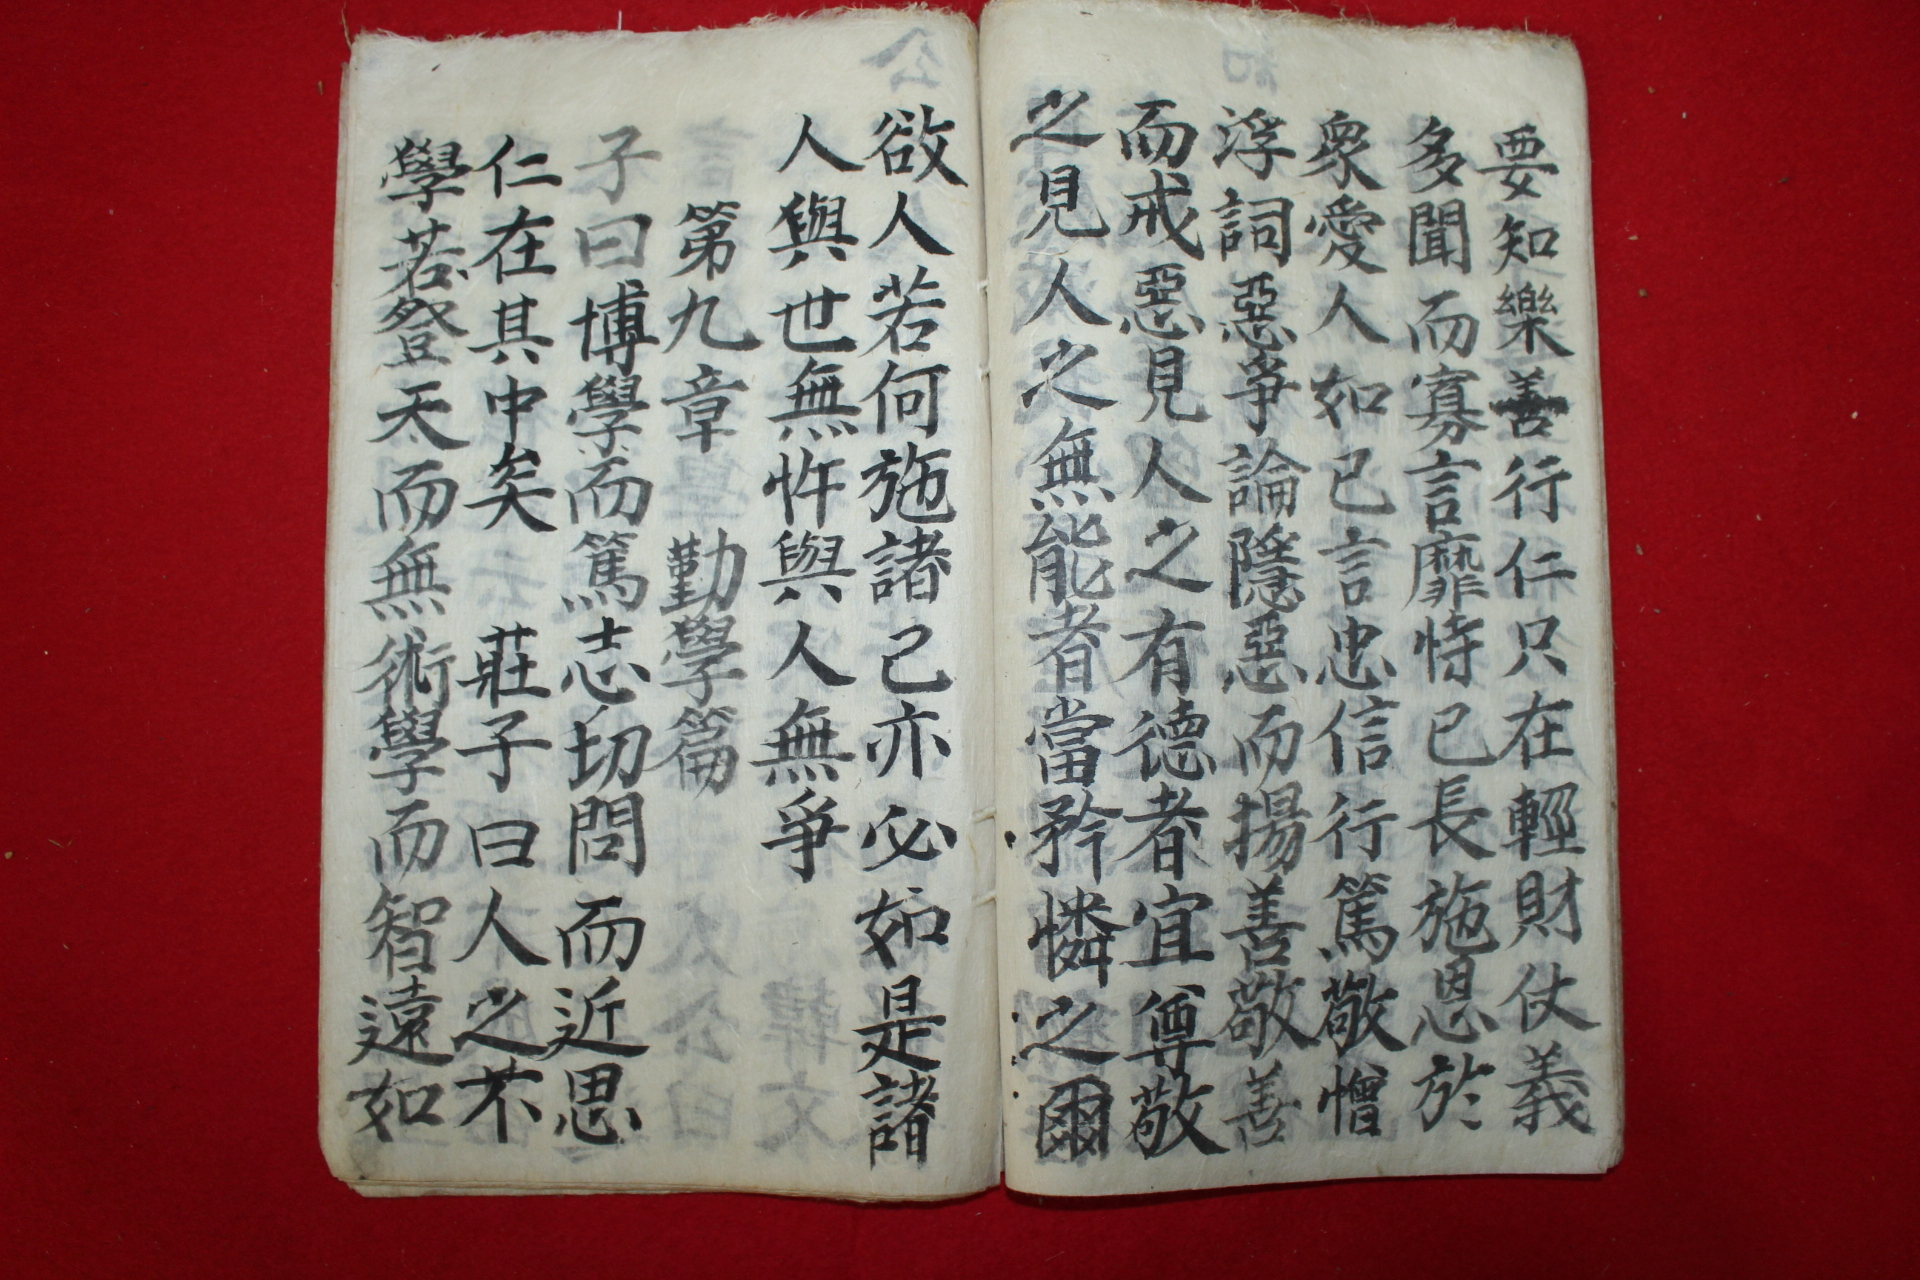 要知樂善行仁只在輕財仗義
多聞而寡言靡恃已長施恩於
衆愛人如已言忠信行篤敬憎
浮詞惡爭論隱惡而揚善敬善
而戒惡見人之有德者宜尊敬
之見人之無能者當矜憐之爾
欲人若何施諸己亦必如是諸
人與世無忤與人無爭
第九章 勤學篇
子曰博學而篤志切問而近思
仁在其中矣 莊子曰人之不
學若登天而無術學而智遠如